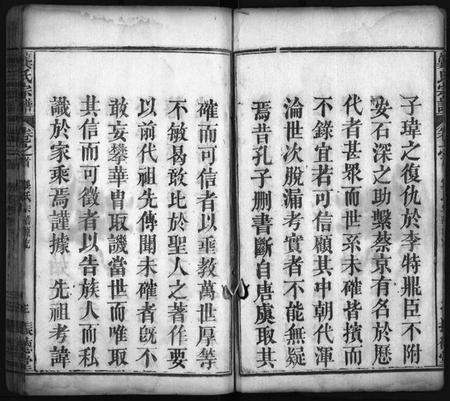 子瑋之復仇於李特鼎臣不附
安石深之助擊蔡京有名於歷
代者甚眾而世系未確皆擯而
不錄宜若可信顧其中朝代渾
淪世次脫漏考實者不能無疑
焉昔孔子刪書斷自唐虞取其
確而可信者以垂教萬世厚等
不敏曷敢比於聖人之著作要
以前代祖先傳聞未確者旣不
敢妄攀華胄取譏當世而唯取
其信而可徵者以告族人而私
識於家乘焉謹據 先祖考諱
龔氏宗譜